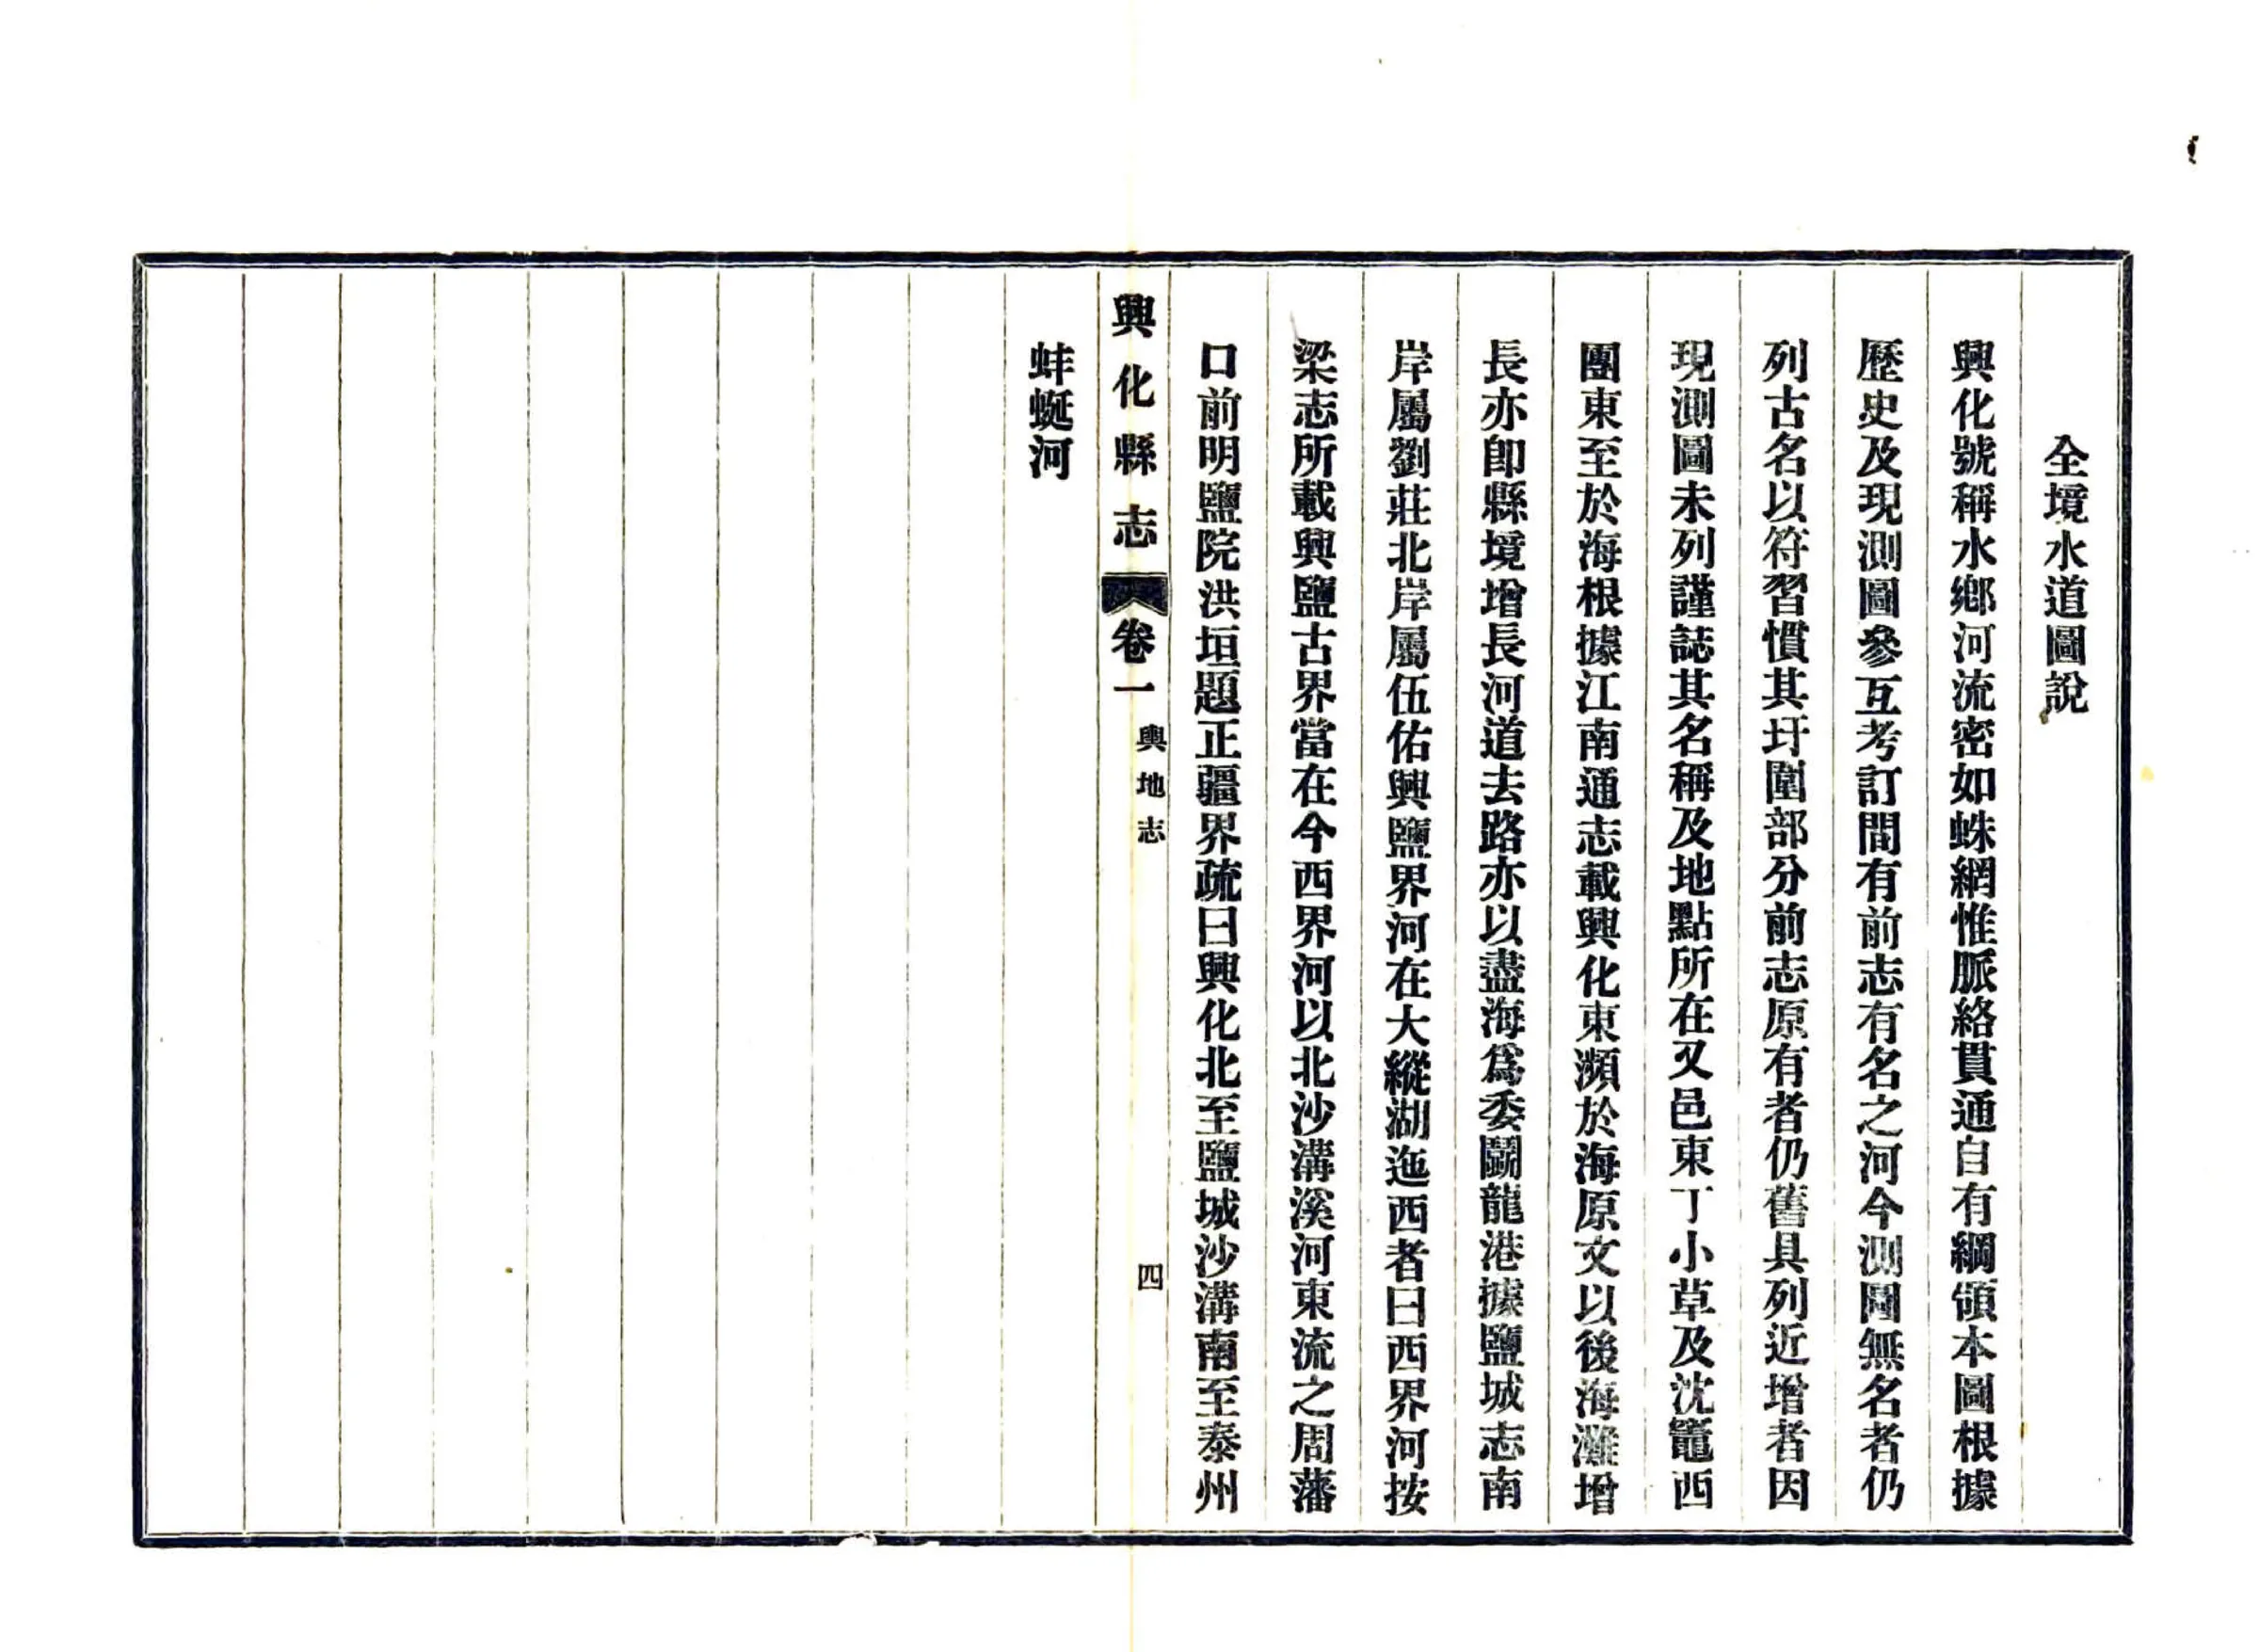 全境水道圖說
興化號稱水鄉河流密如蛛網惟脈絡貫通自有綱領本圖根據
歷史及現測圖參互考訂間有前志有名之河今測圖無名者仍
列古名以符習慣其圩圍部分前志原有者仍舊具列近增者因
現測圖未列謹誌其名稱及地點所在又邑東丁小草及沈竈西
團東至於海根據江南通志載興化東瀕於海原文以後海灘增
長亦卽縣境增長河道去路亦以盡海爲委鬭龍港據鹽城志南
岸屬劉莊北岸屬伍佑興鹽界河在大縱湖迤西者曰西界河按
梁志所載興鹽古界當在今西界河以北沙溝溪河東流之周藩
口前明鹽院洪垣題正疆界疏曰興化北至鹽城沙溝南至泰州
興化縣志
卷一
輿地志
四
蚌蜒河